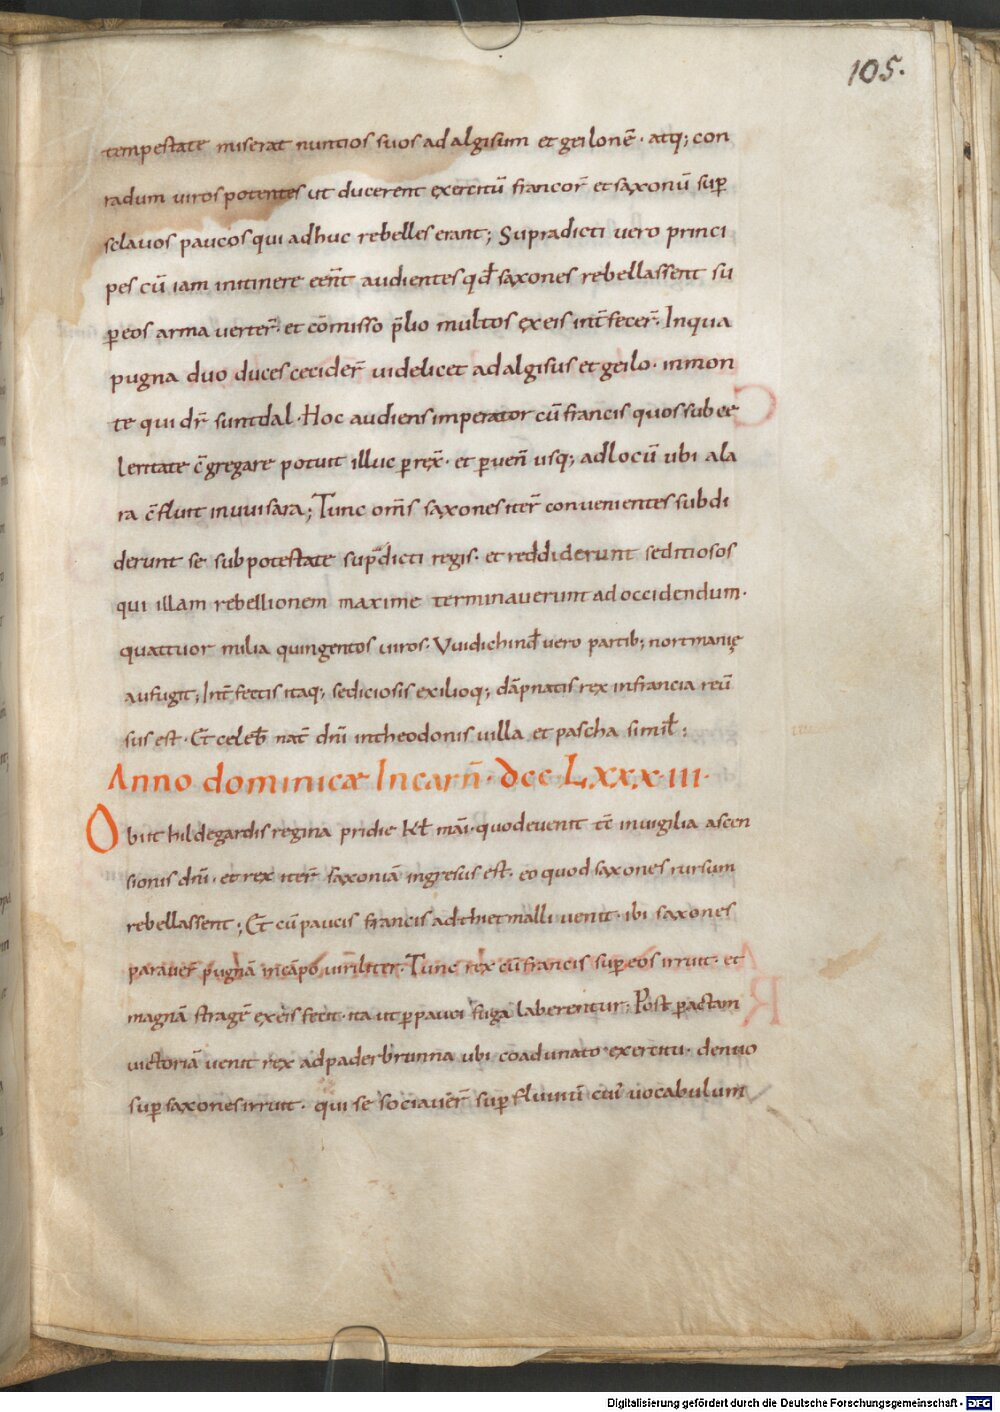 105.
tempestate miserat nuntios suos ad algisum et geilonē · atq; con
radum viros potentes ut ducerent exercitū francor̄ et saxonū sup̄
sclavos paucos qui adhuc rebelles erant; Supradicti vero princi
pes cū iam in itinere eēnt audientes qđ saxones rebellassent su
p eos arma verter̄ · et cōmisso p̄lio multos ex eis int̄fecer̄ · In qua
pugna duo duces cecider̄ videlicet adalgisus et geilo · in mon
te qui dr̄ suntdal · Hoc audiens imperator cū francis quos sub ce
leritate c̄gregare potuit illuc perrex̄ · et pervēn usq; ad locū ubi ala
ra c̄fluit in uuisara; Tunc om̄s saxones iter̄ convenientes subdi
derunt se sub potestate sup̄dicti regis · et reddiderunt seditiosos
qui illam rebellionem maxime terminaverunt ad occidendum ·
quattuor milia quingentos viros · Vuidichinđ vero partib; nortmanię
aufugit; Int̄fectis itaq; sediciosis exilioq; dāpnatis rex in francia reū
sus est · Et celeb̄ nat̄ dn̄i in theodonis villa et pascha simił :
Anno dominicæ Incarn̄ · dcc · Lxxx · iii ·
Obiit hildegardis regina pridie kł māi · quod evenit tc̄ in vigilia ascen
sionis dn̄i · et rex iter̄ saxoniā ingresus est · eo quod saxones rursum
rebellassent; Et cū paucis francis ad thietmalli venit · ibi saxones
paraver̄ pugnā in cāpo viriliter · Tunc rex cū francis sup eos irruit · et
magnā stragē ex eis fecit · ita ut p pauci fuga laberentur; Post pactam
victoriā venit rex ad paderbrunna ubi coadunato exercitu · denuo
sup saxones irruit · qui se sociaver̄ sup fluviū cui vocabulum
Digitalisierung gefördert durch die Deutsche Forschungsgemeinschaft - DFG